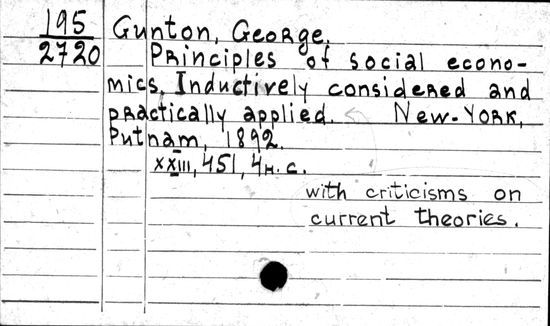 195
2720
Gunton, George.
Principles of social econo-
mics. Inductively considered and
practically applied. New-York,
Putnam, 1892.
XXIII, 451, 4 н. с.
with criticisms on
current theories.